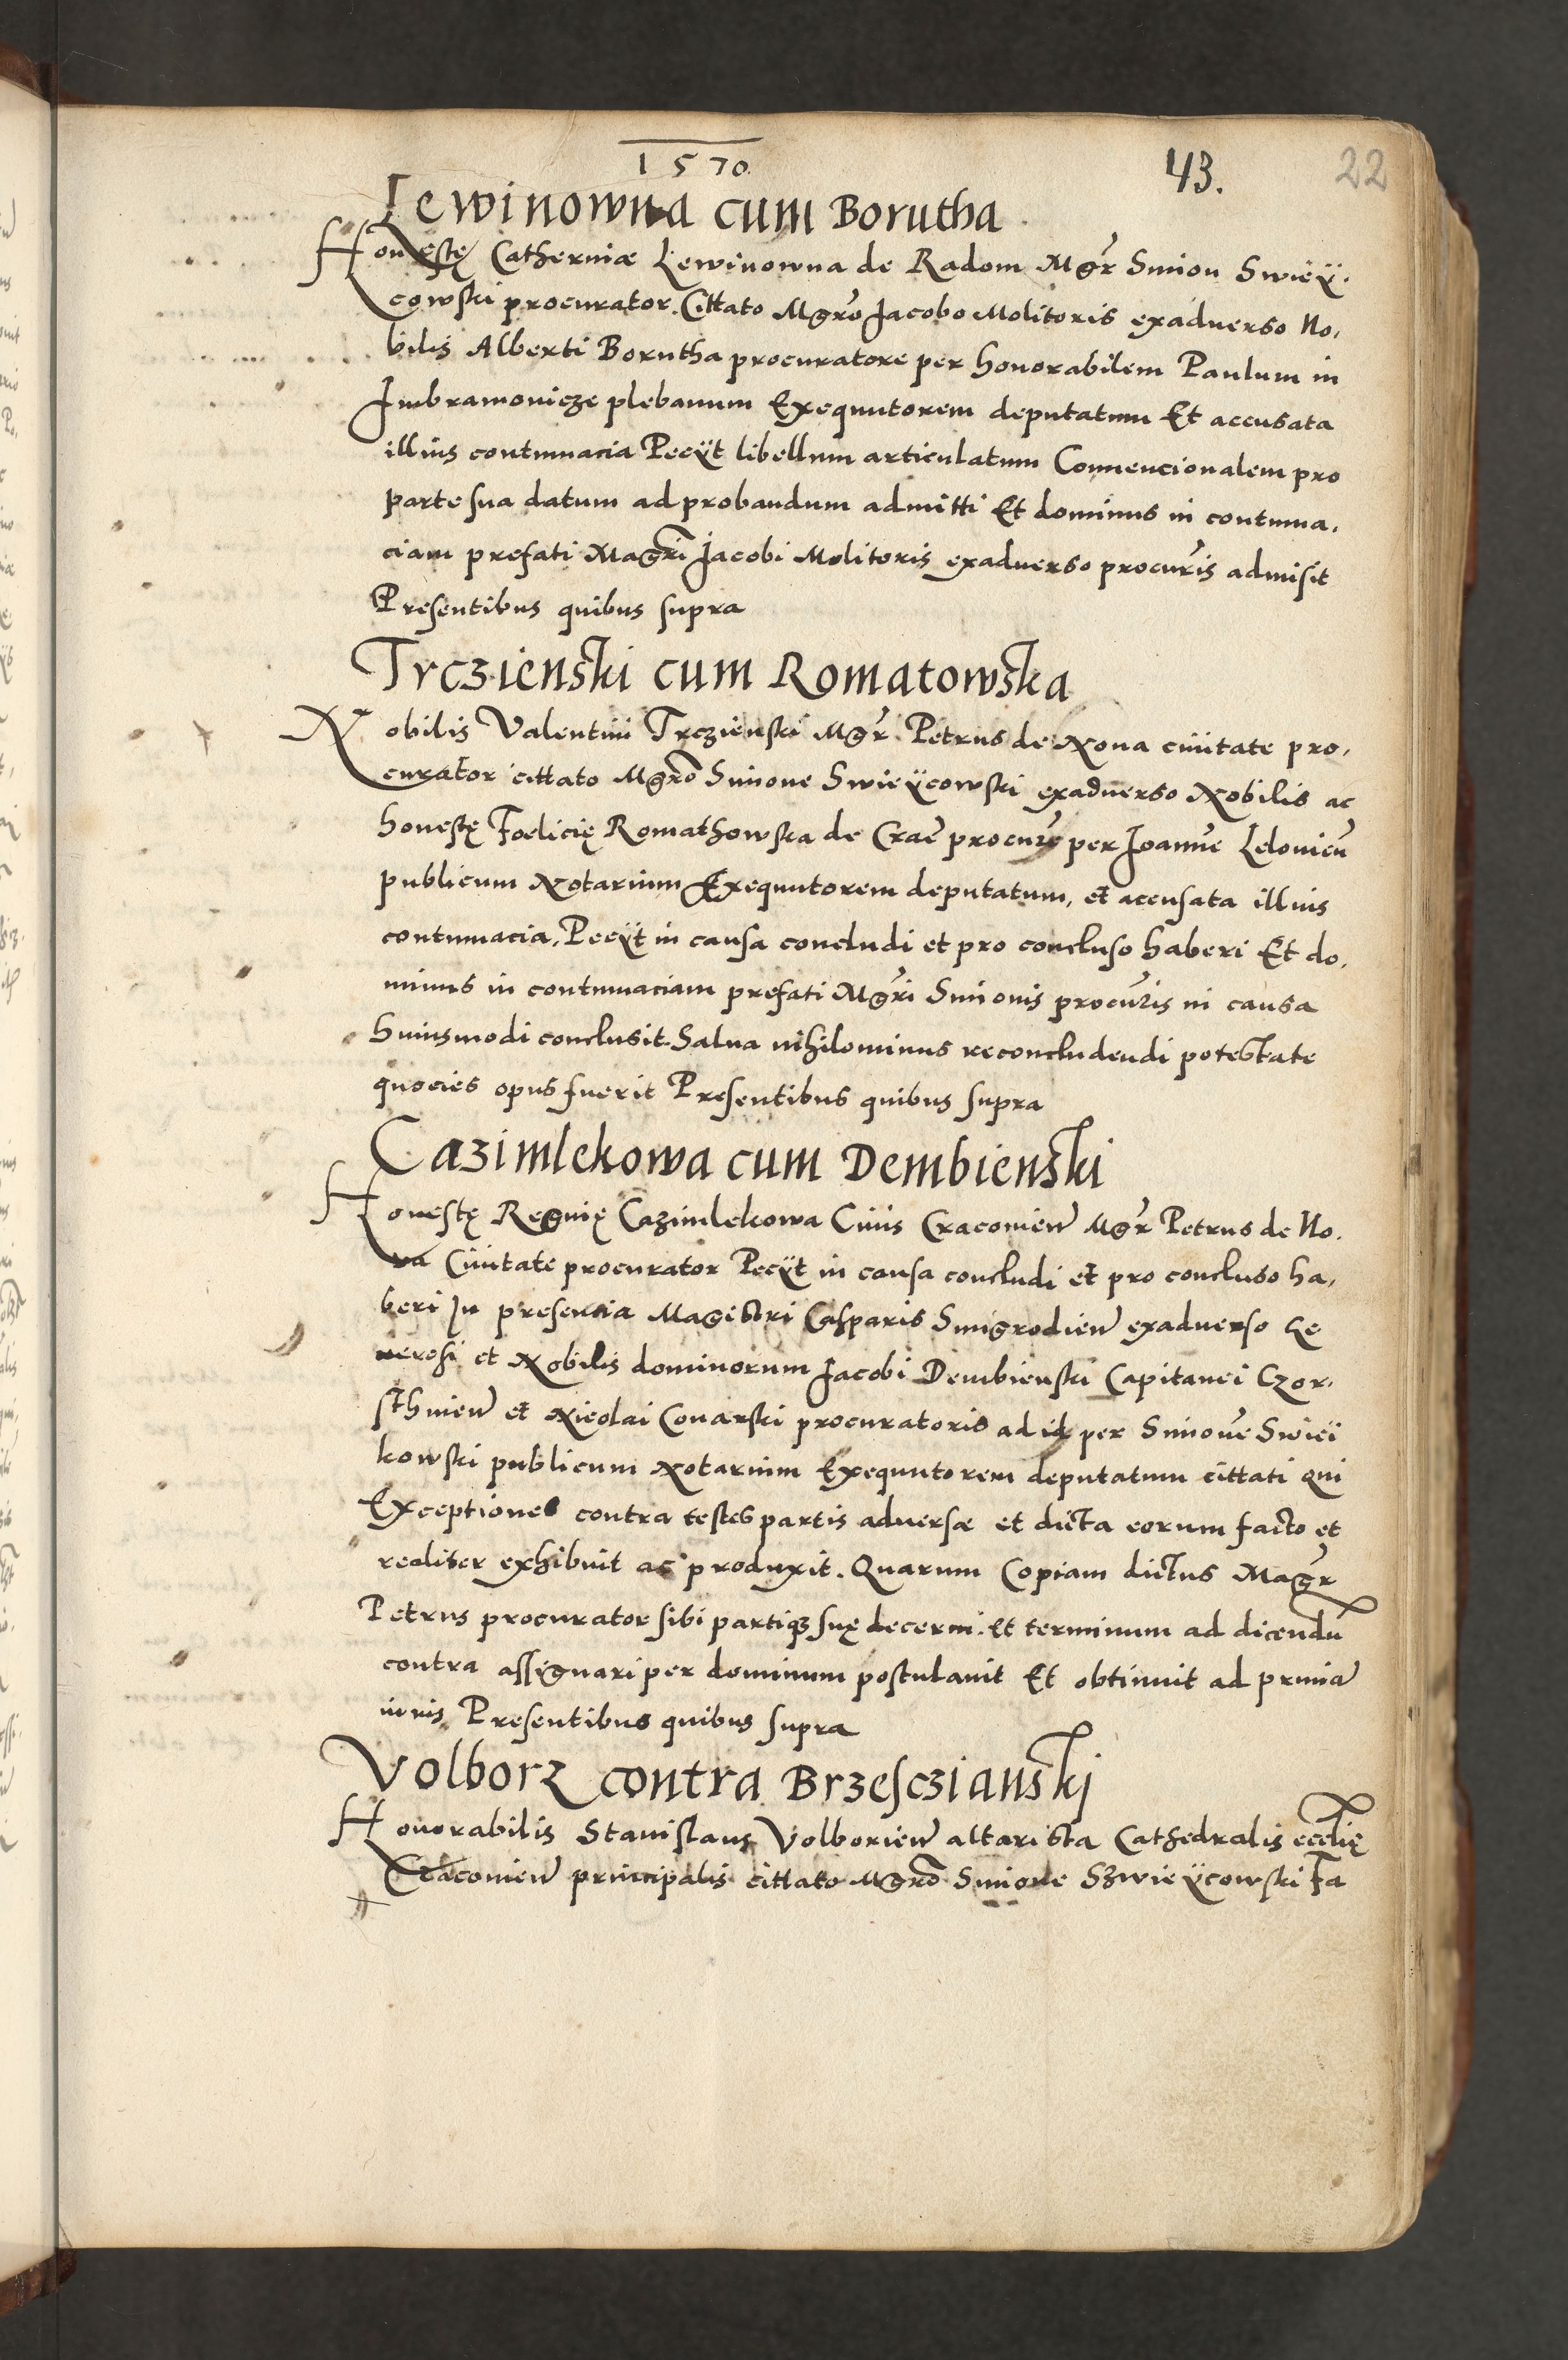 1570
43.
22
Lewinowna cum Borutha
Honestę Catherinæ Lewinowna de Radom Mgr̄ Simon Swieÿ,
cowski procurator. Cittato Mgrō Jacobo Molitoris exaduerso No,
bilis Alberti Borutha procuratore per honorabilem Paulum in
Imbramouicze plebanum Exequutorem deputatum Et accusata
illius contumacia Pecÿt libellum articulatum Conuencionalem pro
parte sua datum ad probandum admitti Et dominus in contuma,
ciam prefati Magrī Jacobi Molitoris exaduerso procurīs admisit
Presentibus quibus supra
Trczienski cum Romatowska
Nobilis Valentini Trczienski Mgr̄ Petrus de Noua ciuitate pro,
curator cittato Mgrō Simone Swieÿcowski exaduerso Nobilis ac
honestę Foelicię Romathowska de Crac̄ procurē per Joannē Lelouicū
publicum Notarium Exequutorem deputatum, et accusata illius
contumacia, Pecÿt in causa concludi et pro concluso haberi Et do,
minus in contumaciam prefati Mgrī Simonis procurīs in causa
huiusmodi conclusit. Salua nihilominus reconcludendi potestate
quocies opus fuerit Presentibus quibus supra
Cazimlekowa cum Dembienski
Honestę Reginę Cazimlekowa Ciuis Cracouien̄ Mgr̄ Petrus de No,
va Ciuitate procurator Pecÿt in causa concludi et pro concluso ha,
beri In presencia Magistri Casparis Smigrodien̄ exaduerso Ge
nerosi et Nobilis dominorum Jacobi Dembienski Capitanei Czor,
sthinen̄ et Nicolai Conarski procuratoris ad id per Simonē Swieï
kowski publicum Notarium Exequutorem deputatum cittati qui
Exceptiones contra testes partis aduersæ et dicta eorum facto et
realiter exhibuit ac produxit. Quarum Copiam dictus Magr̄
Petrus procurator sibi partiq3 suę decerni. et terminum ad dicendū
contra assignari per dominum postulauit Et obtinuit ad primā
iuris Presentibus quibus supra
Volborz contra Brzesczianskj
Honorabilis Stanislaus Volborien̄ altarista Cathedralis eccl̄ię
Cracouien̄ principalis cittato Mgrō Simone Szwieÿcowski Fa